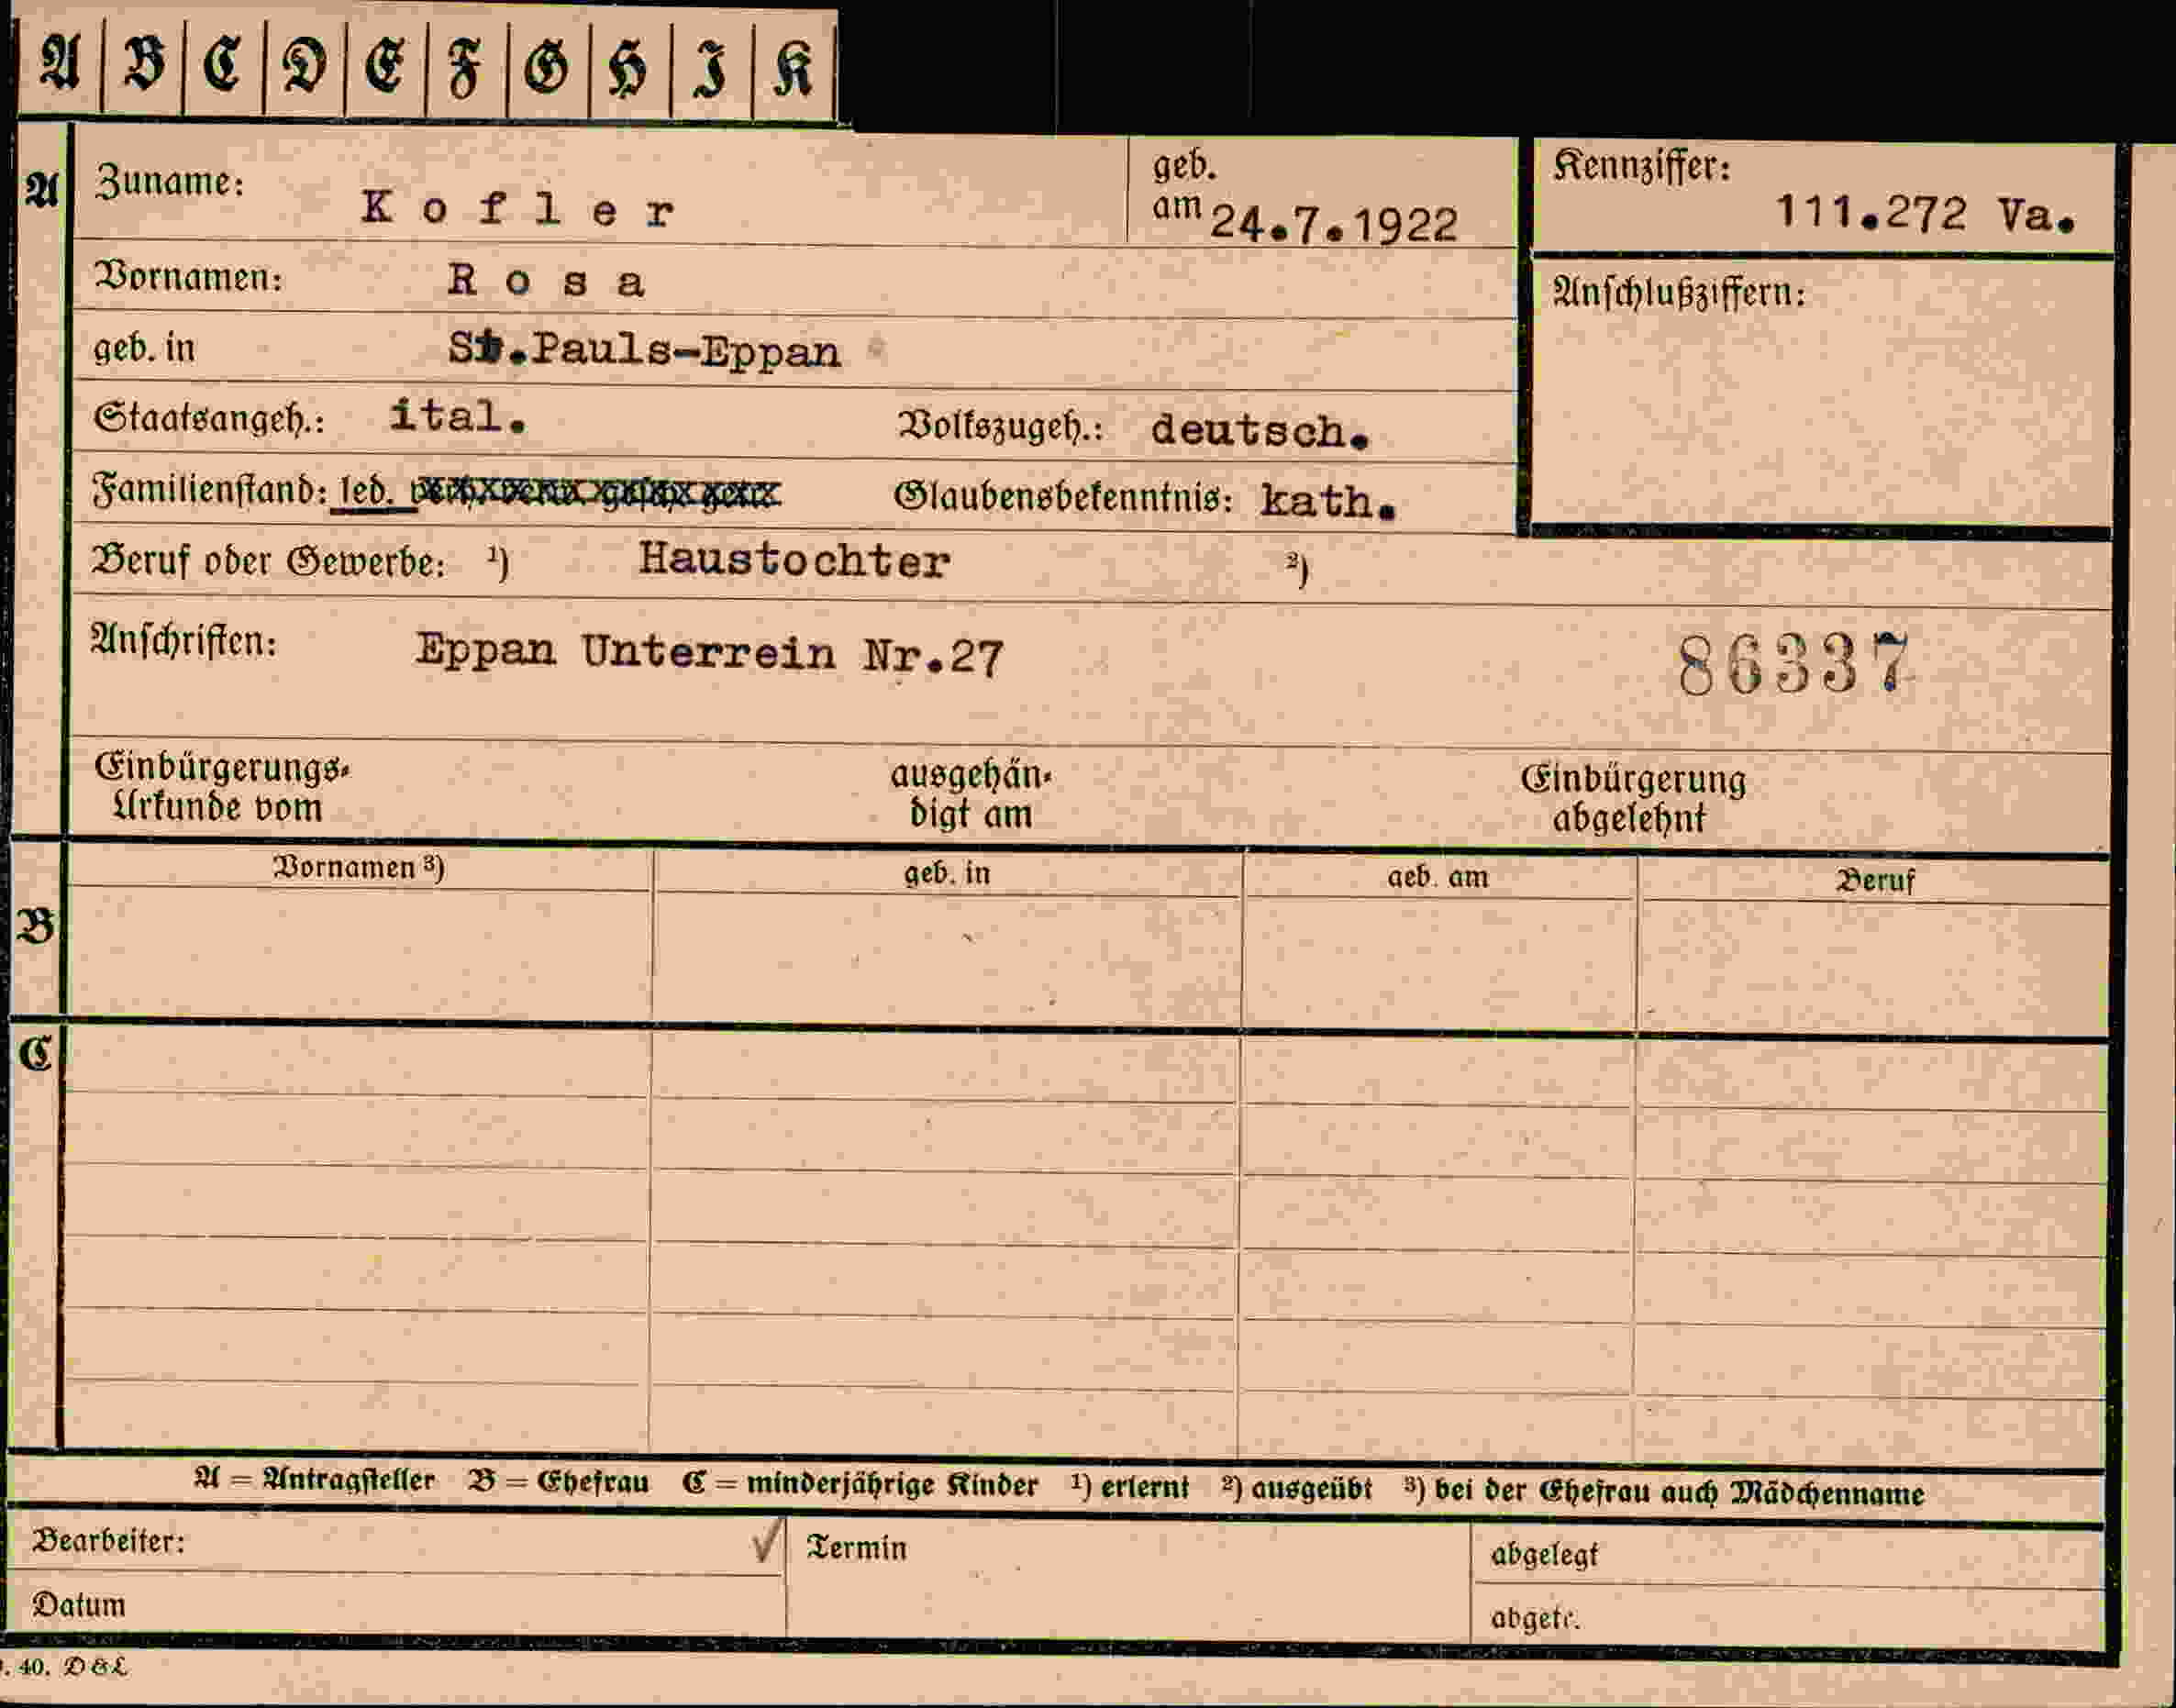 A B C D E F G H I K
A Zuname: Kofler geb. am 24.7.1922 Kennziffer: 111.272 Va.
Vornamen: Rosa Anschlußziffern:
geb. in St.Pauls-Eppan
Staatsangeh.: ital. Volkszugeh.: deutsch.
Familienstand: led. Glaubensbekenntnis: kath.
Beruf oder Gewerbe: ¹) Haustochter ²)
Anschriften: Eppan Unterrein Nr.27 86337
Einbürgerungs- ausgehän- Einbürgerung
Urkunde vom digt am abgelehnt
Vornamen ³) geb. in geb. am Beruf
B
C
A = Antragsteller B = Ehefrau C = minderjährige Kinder ¹) erlernt ²) ausgeübt ³) bei der Ehefrau auch Mädchenname
Bearbeiter: Termin abgelegt
Datum abgetr.
40. D&L